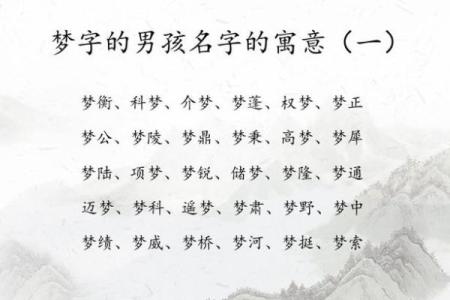 梦字的男孩名字的寓意（一）
梦衡、科梦、介梦、梦蓬、权梦、梦正
梦公、梦陵、梦鼎、梦秉、高梦、梦犀
梦陆、项梦、梦锐、储梦、梦隆、梦通
迈梦、梦科、遥梦、梦肃、梦野、梦中
梦绩、梦威、梦桥、梦河、梦挺、梦索